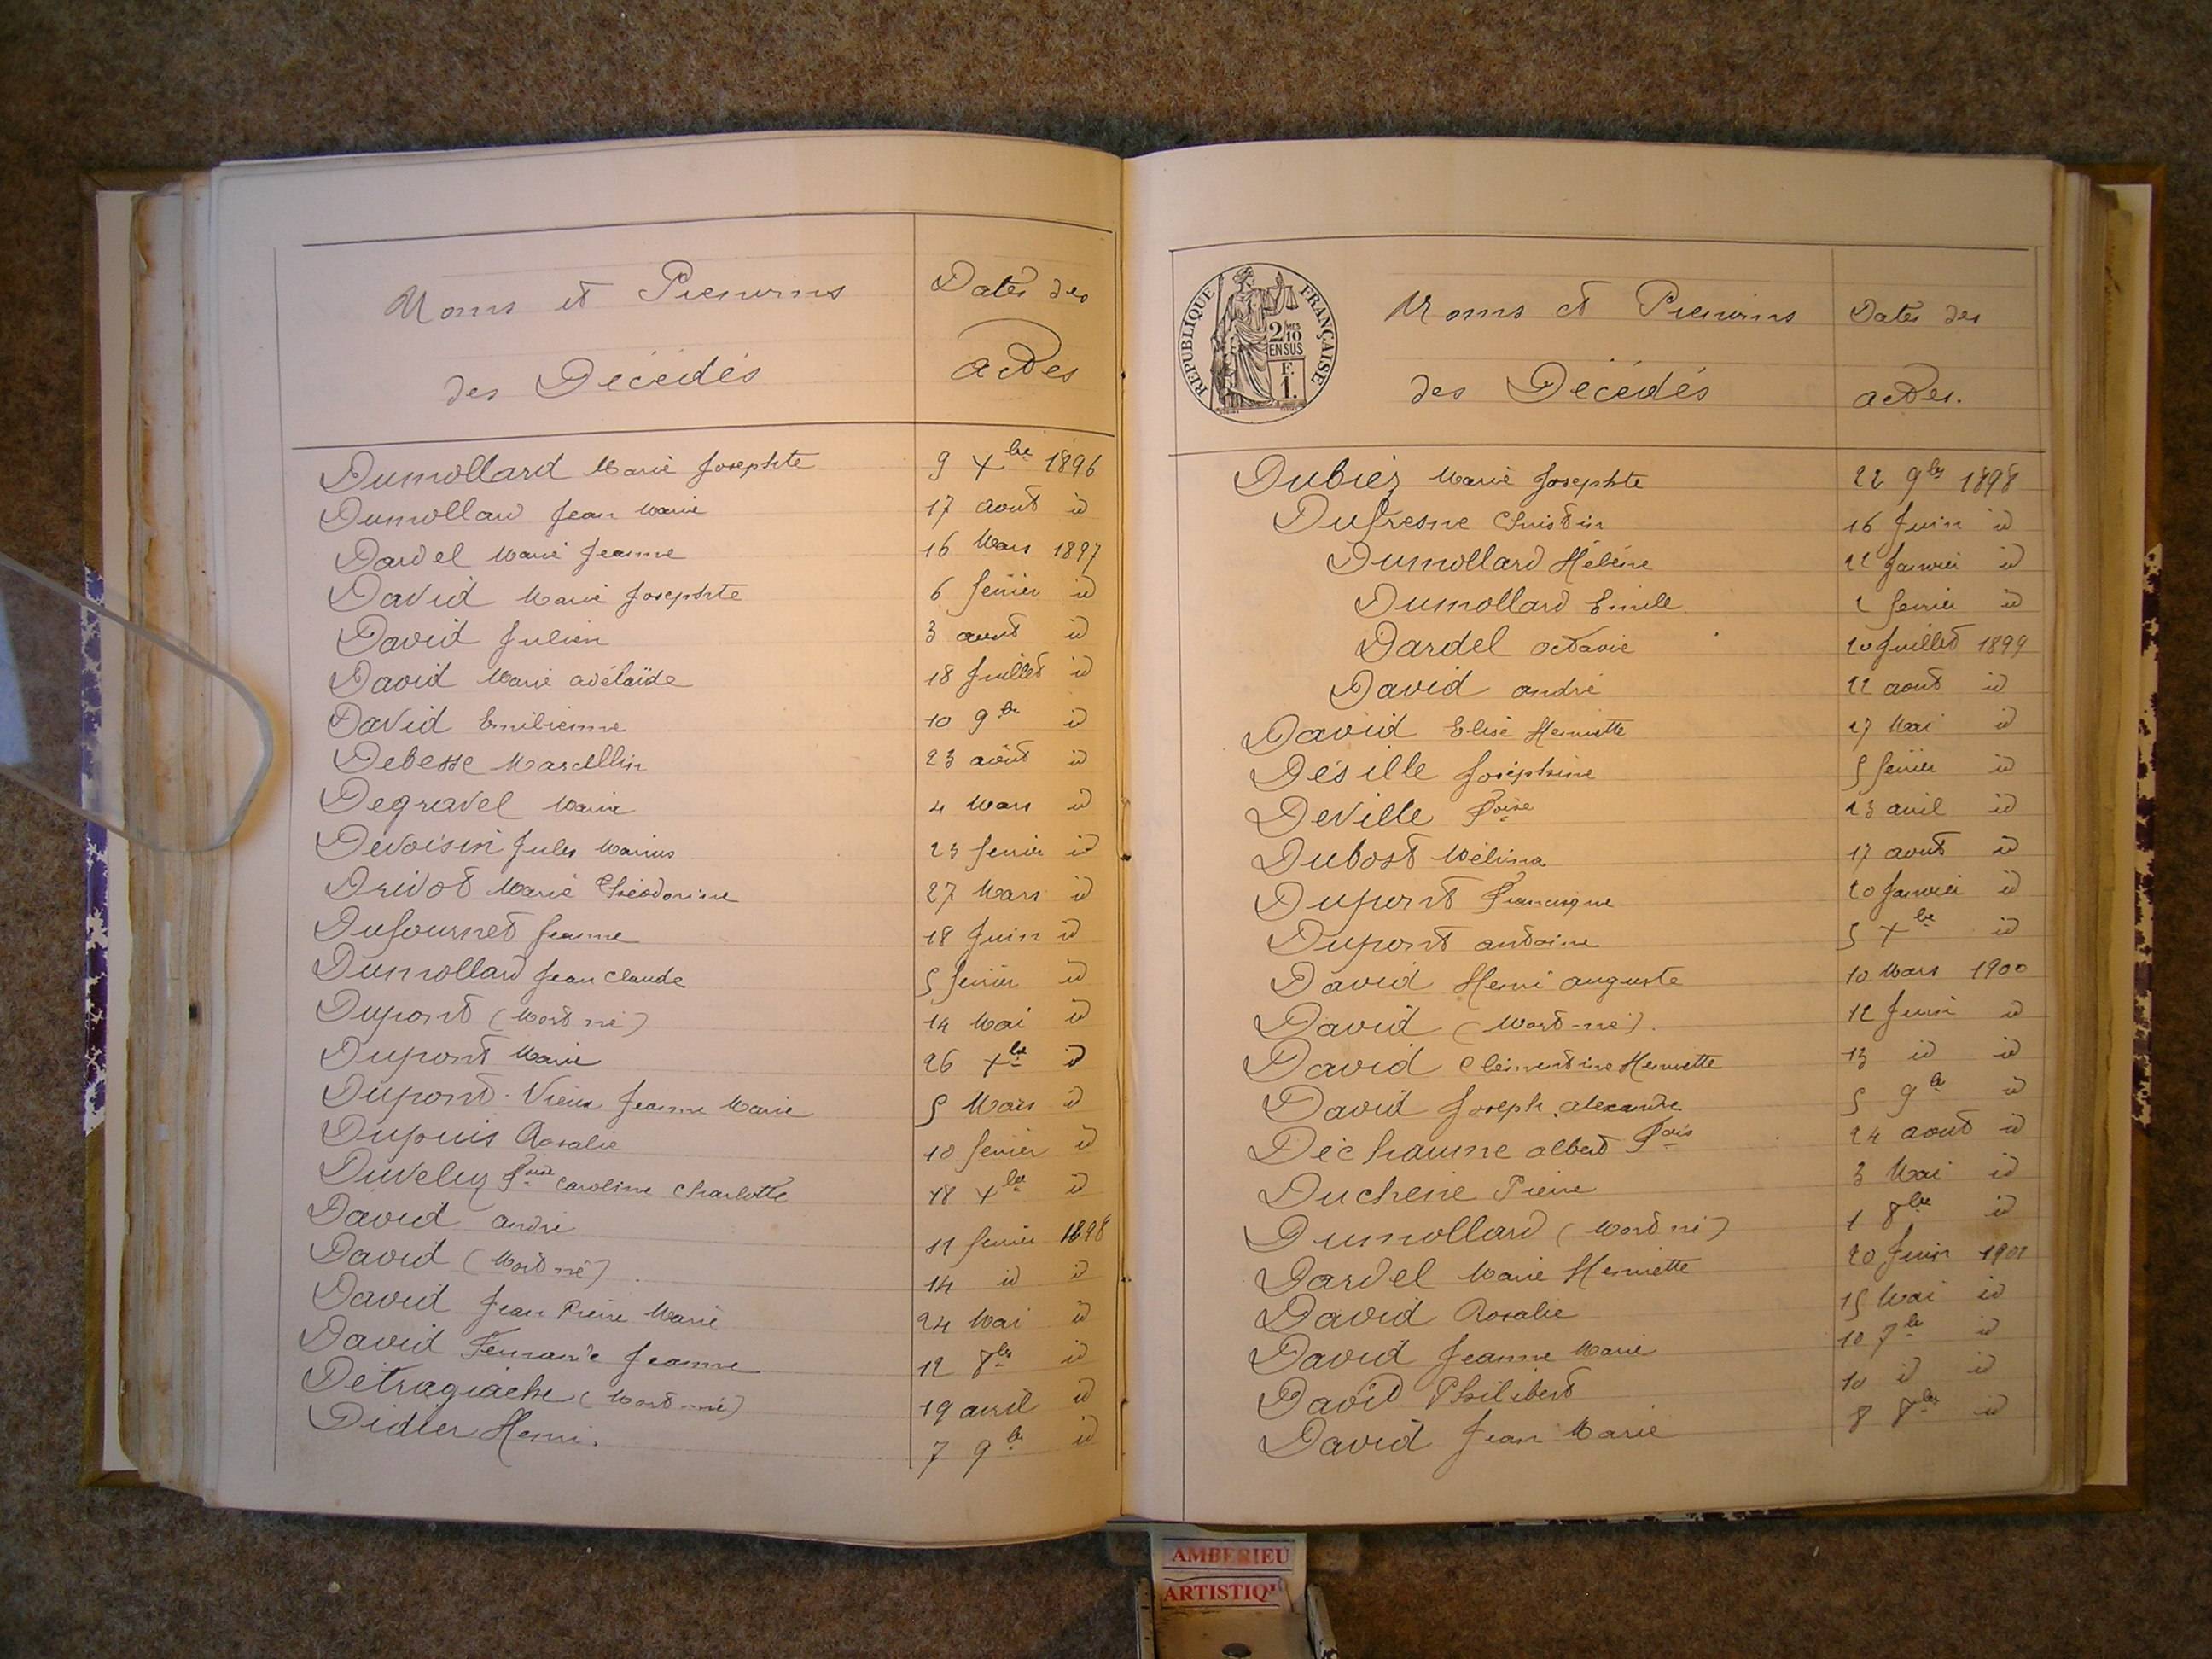 Noms et Prénoms
des Décédés
Dates des
actes
Dumollard Marie Josephte 9 Xbre 1896
Dumollard Jean Marie 17 aout id
Dardel Marie Jeanne 16 Mars 1897
David Marie Josephte 6 fevrier id
David Julien 3 aout id
David Marie adélaïde 18 Juillet id
David Emilienne 10 9bre id
Debesse Marcellin 23 août id
Degravel Marie 4 Mars id
Devoisin Jules Marius 23 fevrier id
Drivot Marie Théodorine 27 Mars id
Dufournet Jeanne 18 Juin id
Dumollard Jean Claude 5 fevrier id
Dupont (Mort né) 14 Mai id
Dupont Marie 26 Xbre id
Dupont-Vieux Jeanne Marie 5 Mars id
Dupuis Rosalie 10 fevrier id
Duveluz Foise Caroline Charlotte 18 Xbre id
David andré 11 fevrier 1898
David (Mort né) 14 id id
David Jean Pierre Marie 24 Mai id
David Fernande Jeanne 12 8bre id
Détragiache (Mort-né) 19 avril id
Didier Henri. 7 9bre id
REPUBLIQUE FRANÇAISE
2/10 MES
EN SUS
F.
1.
Noms et Prénoms
des Décédés
Dates des
actes.
Dubiez Marie Josephte 22 9bre 1898
Dufresne Christin 16 Juin id
Dumollard Hélène 22 Janvier id
Dumollard Emile 2 fevrier id
Dardel octavie 20 Juillet 1899
David andré 22 aout id
David Elise Henriette 27 Mai id
Désille Joséphine 5 fevrier id
Deville Foise 23 avril id
Dubost Mélina 17 aout id
Dupont Francisque 20 Janvier id
Dupont antoine 5 Xbre id
David Henri auguste 10 Mars 1900
David (Mort-né). 12 Juin id
David Clémentine Henriette 13 id id
David Joseph alexandre 5 9bre id
Déchaume albert Fois 24 aout id
Duchene Pierre 3 Mai id
Dumollard (Mort né) 1 8bre id
Dardel Marie Henriette 20 Juin 1901
David Rosalie 15 Mai id
David Jeanne Marie 10 7bre id
David Philibert 10 id id
David Jean Marie 8 8bre id
AMBERIEU
ARTISTIQ